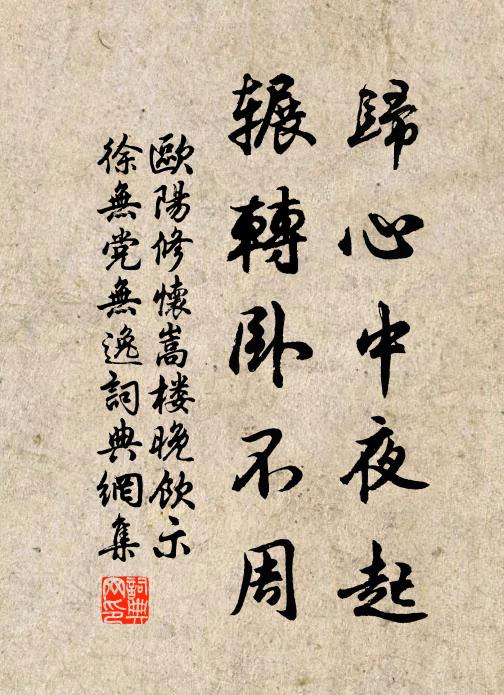 歸心中夜起
輾轉臥不周
歐陽修懷嵩楼晚飲示
徐無党無逸詞典網集
詞典网印